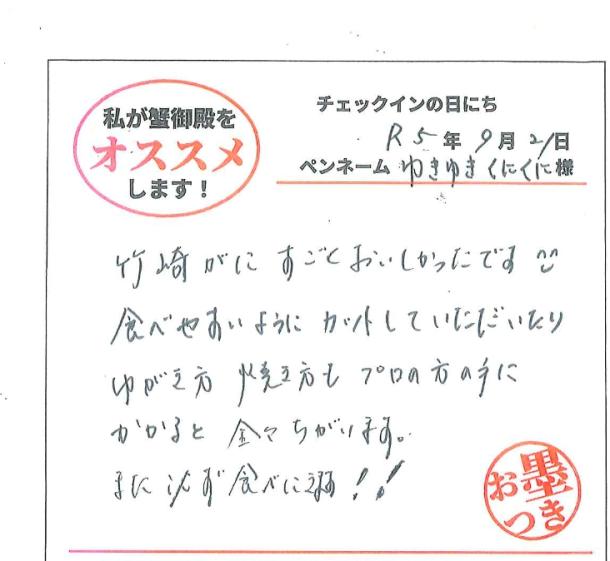 私が蟹御殿を
オススメ
します！
チェックインの日にち
R5年9月21日
ペンネーム ゆきゆきくにくに様
竹崎がに すごくおいしかったです
食べやすいように カットしていただいたり
ゆがき方 焼き方も プロの方の手に
かかると 全々ちがいます。
また 必ず食べに来ます!!
お墨
つき